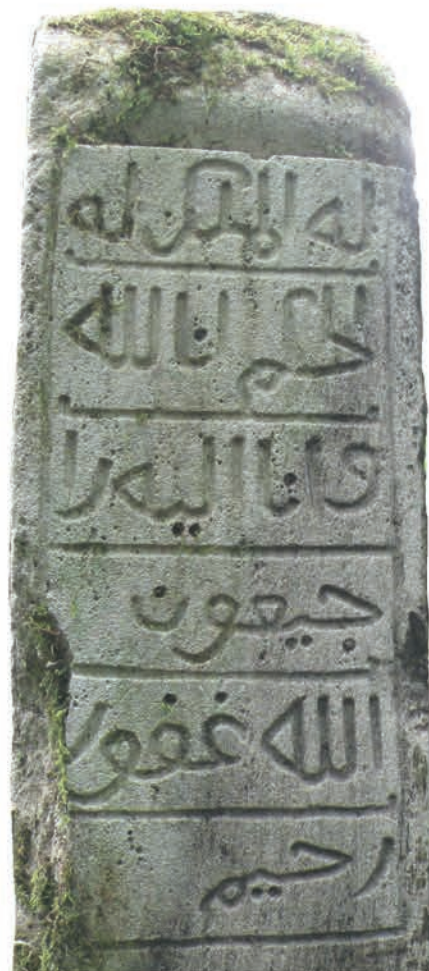 له الملك له
الحكم انا لله
و انا اليه را
جيعون
الله غفور
رحيم